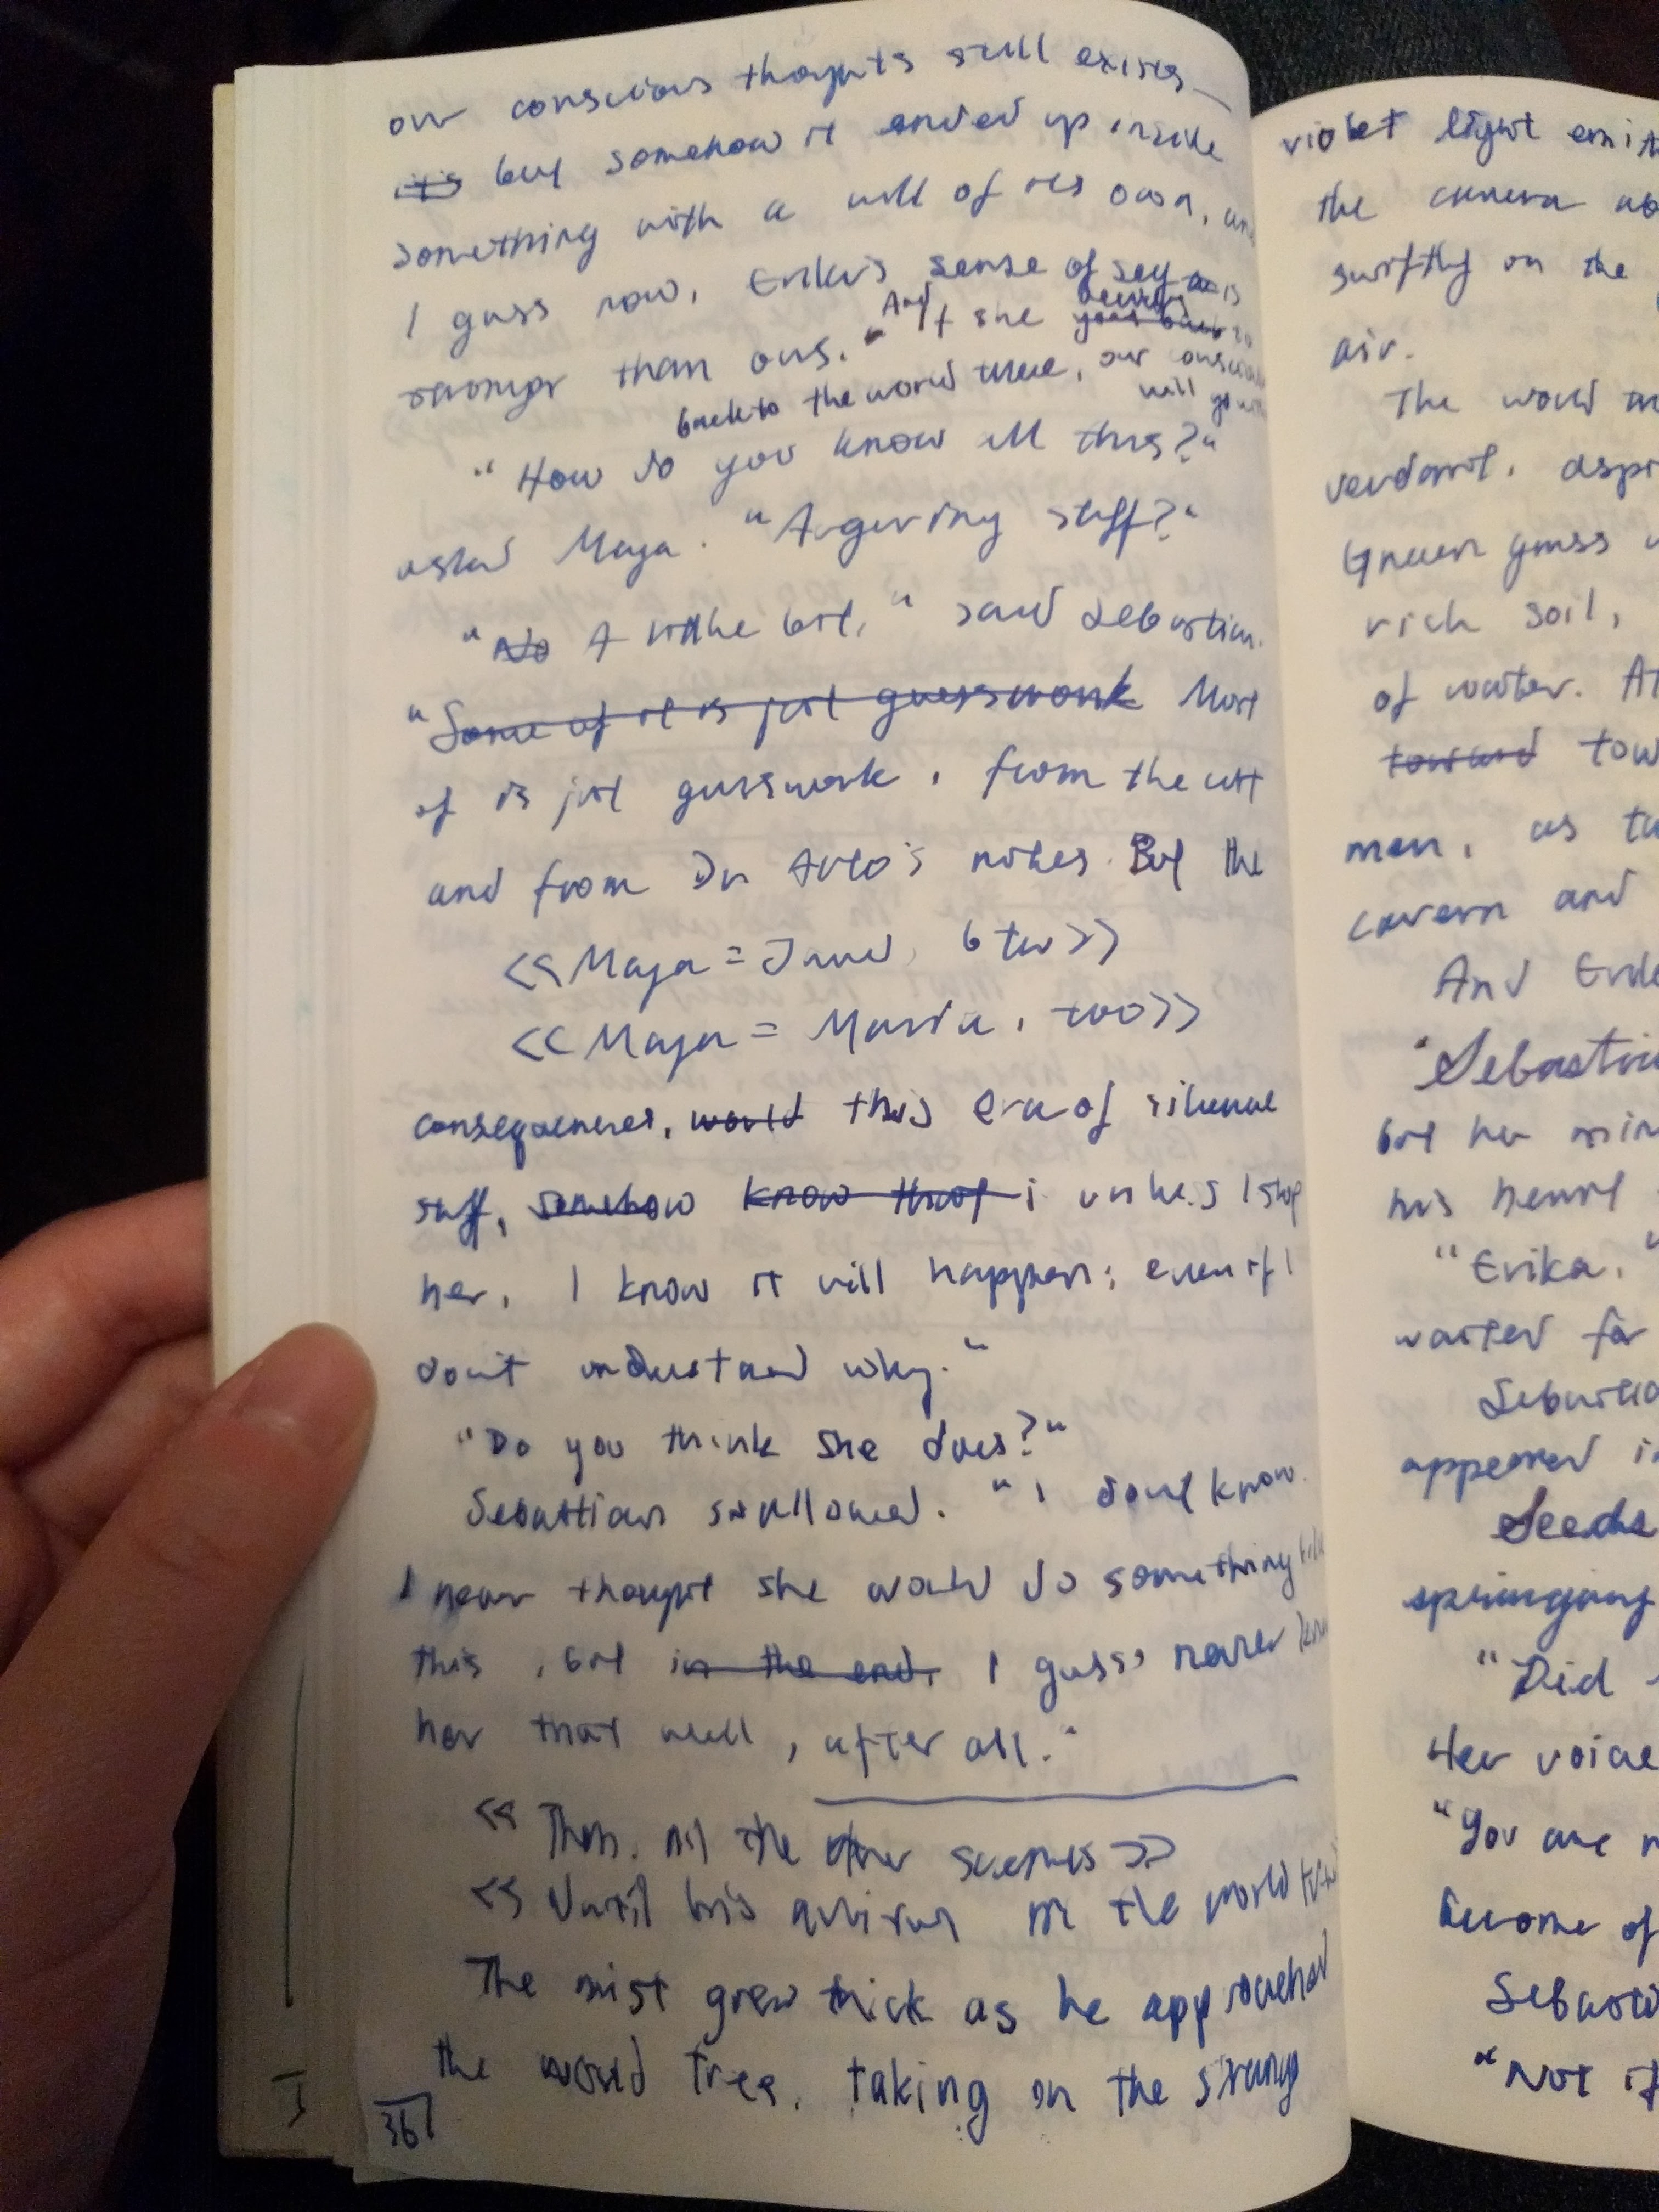 our conscious thoughts still exists
it's but somehow it ended up inside
something with a will of its own, an
I guess now, Erika's sense of self is
stronger than ours." And if she
back to the world tree, our
will go
"How do you know all this?"
asked Maja. " stuff?"
"No A little bit," said Sebastian.
"Some of it is just guesswork Most
of is just guesswork, from the
and from Dr notes. But the
<<Maja = Jane, btw>>
<<Maja = Maria, too>>
consequences, would this era of silence
stuff, somehow know that i unless I stop
her, I know it will happen; even if I
don't understand why."
"Do you think she does?"
Sebastian swallowed. "I don't know.
I never thought she would do something
this, but in the end, I guess never
her that well, after all."
<< Then, all the other scenes >>
<< Until his arrival in the world
The mist grew thick as he approached
the world tree, taking on the strange
36
violet light emit
the camera
swiftly on the
air.
The world
verdant,
Green grass
rich soil,
of water. At
toward tow
men, as
cavern and
And
"Sebastia
but her min
his heart
"Erika,"
waited for
Sebastia
appeared i
Seeds
springing
"Did
Her voice
"You are
become of
Sebasti
"Not if